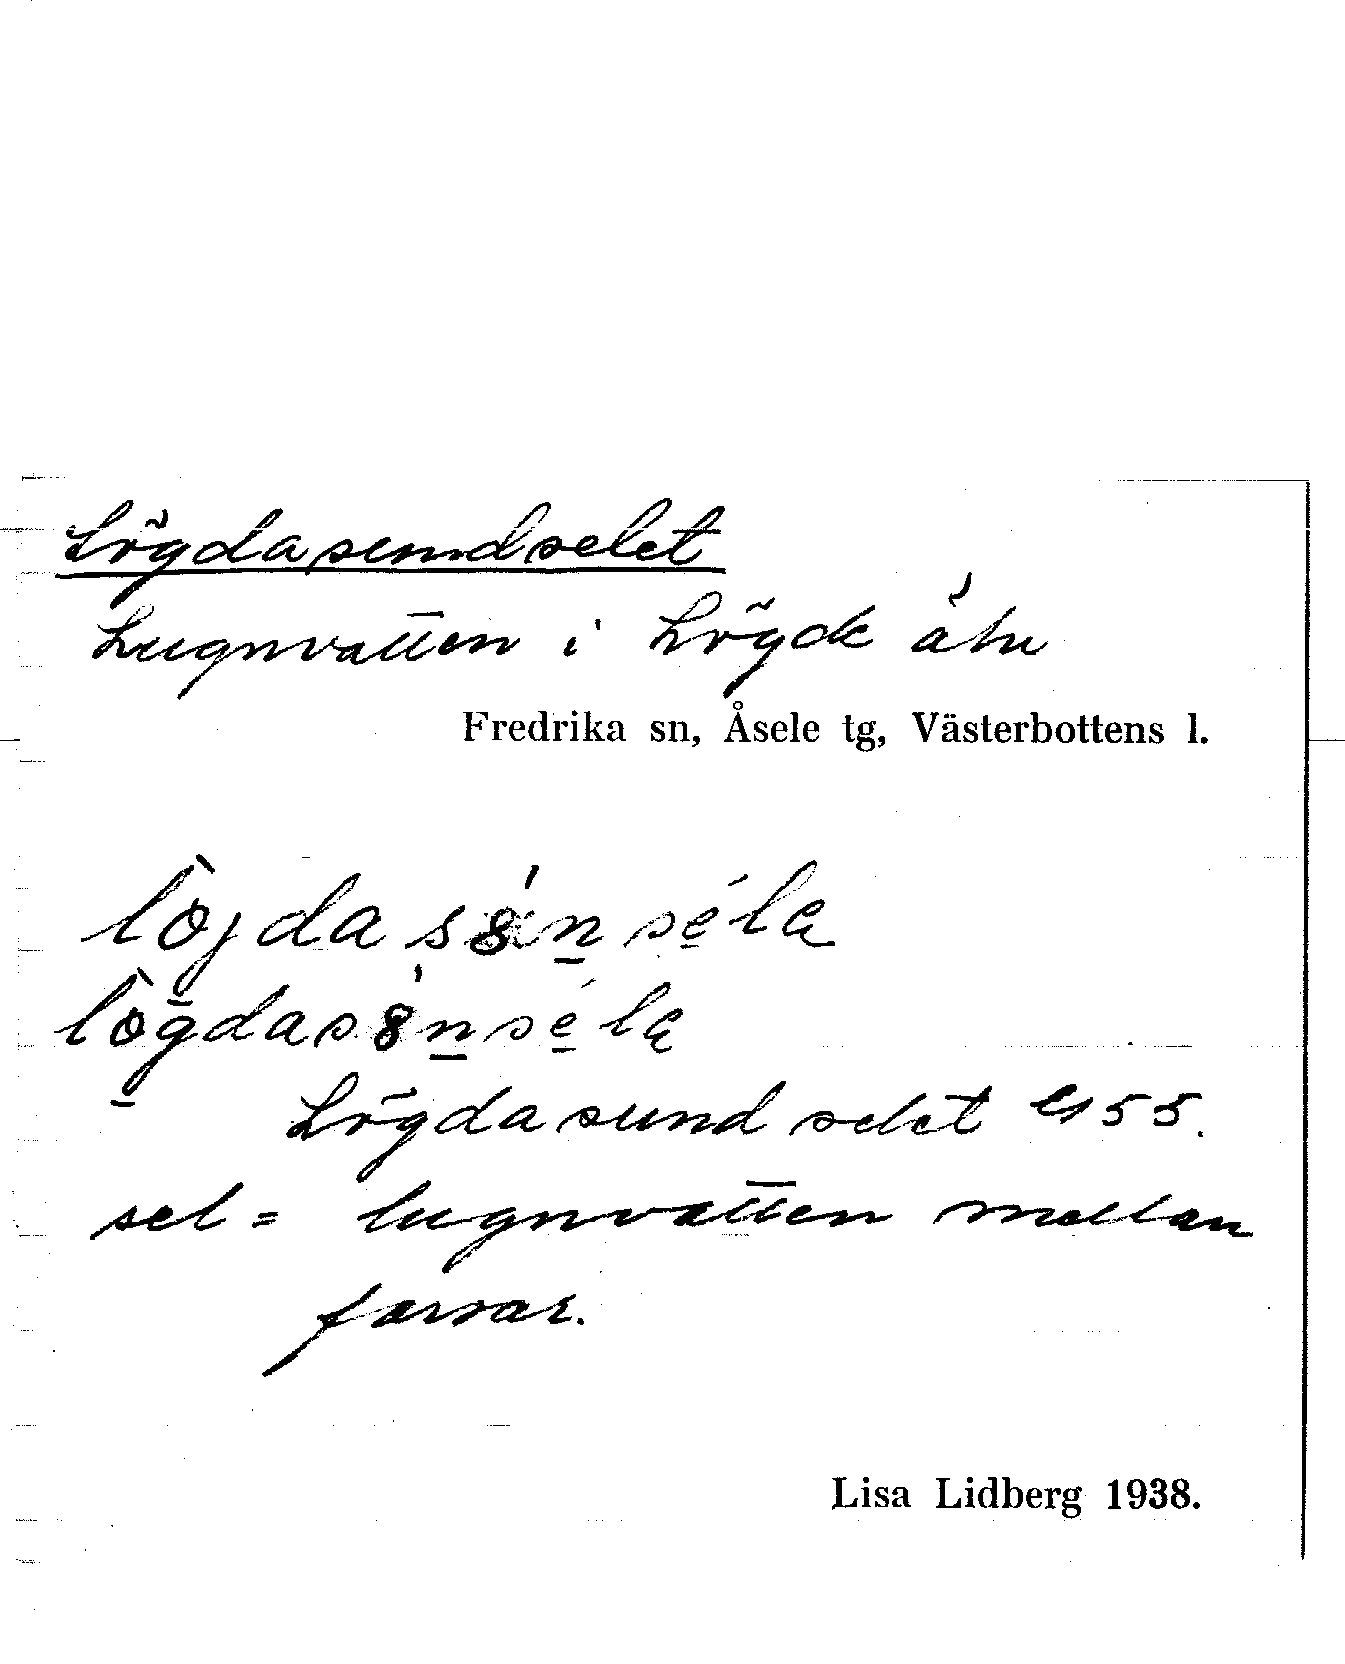 Lögdasundselet
Lugnvatten i Lögde älv
Fredrika sn, Åsele tg, Västerbottens l.
Lögdasund selet 55.
sel = lugnvatten mellan
forsar.
Lisa Lidberg 1938.